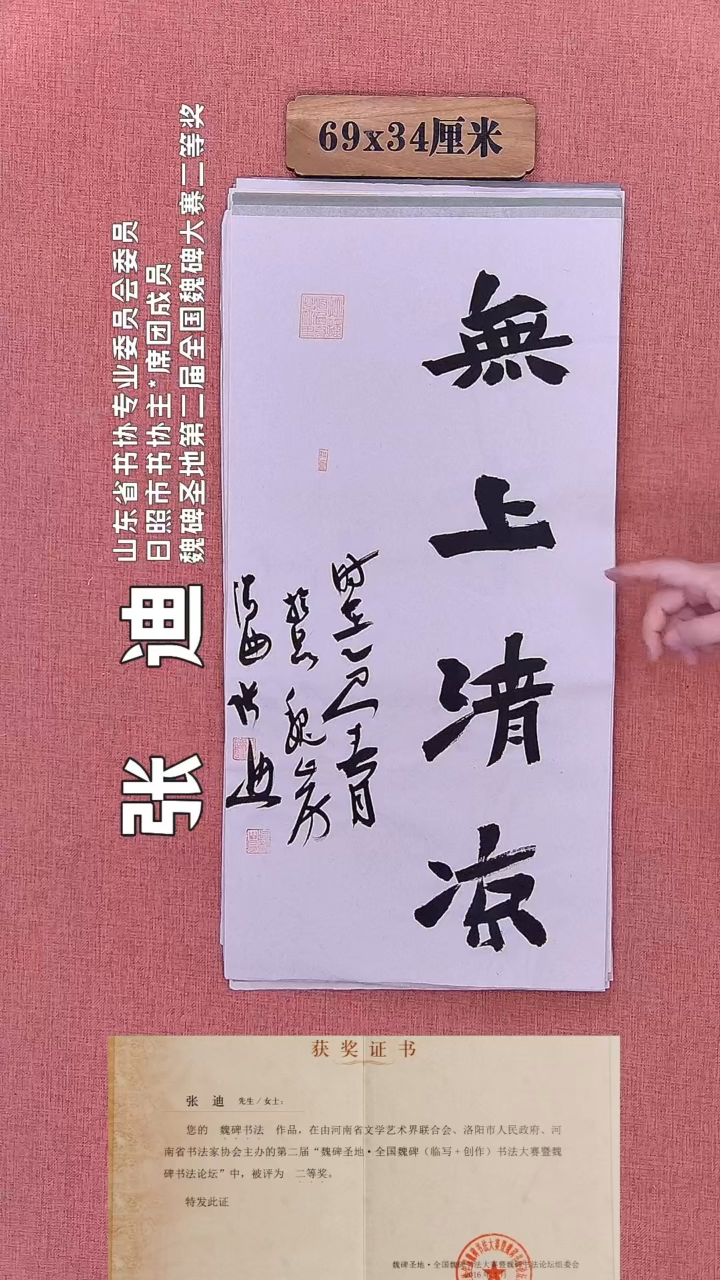 69x34厘米
無上清凉
山东省书协专业委员会委员
日照市书协主*席团成员
魏碑圣地第二届全国魏碑大赛二等奖
张 迪
获奖证书
张 迪 先生/女士:
您的 魏碑书法 作品,在由河南省文学艺术界联合会、洛阳市人民政府、河
南省书法家协会主办的第二届“魏碑圣地·全国魏碑(临写+创作)书法大赛暨魏
碑书法论坛”中,被评为 二等奖。
特发此证
魏碑圣地·全国魏碑书法大赛暨魏碑书法论坛组委会